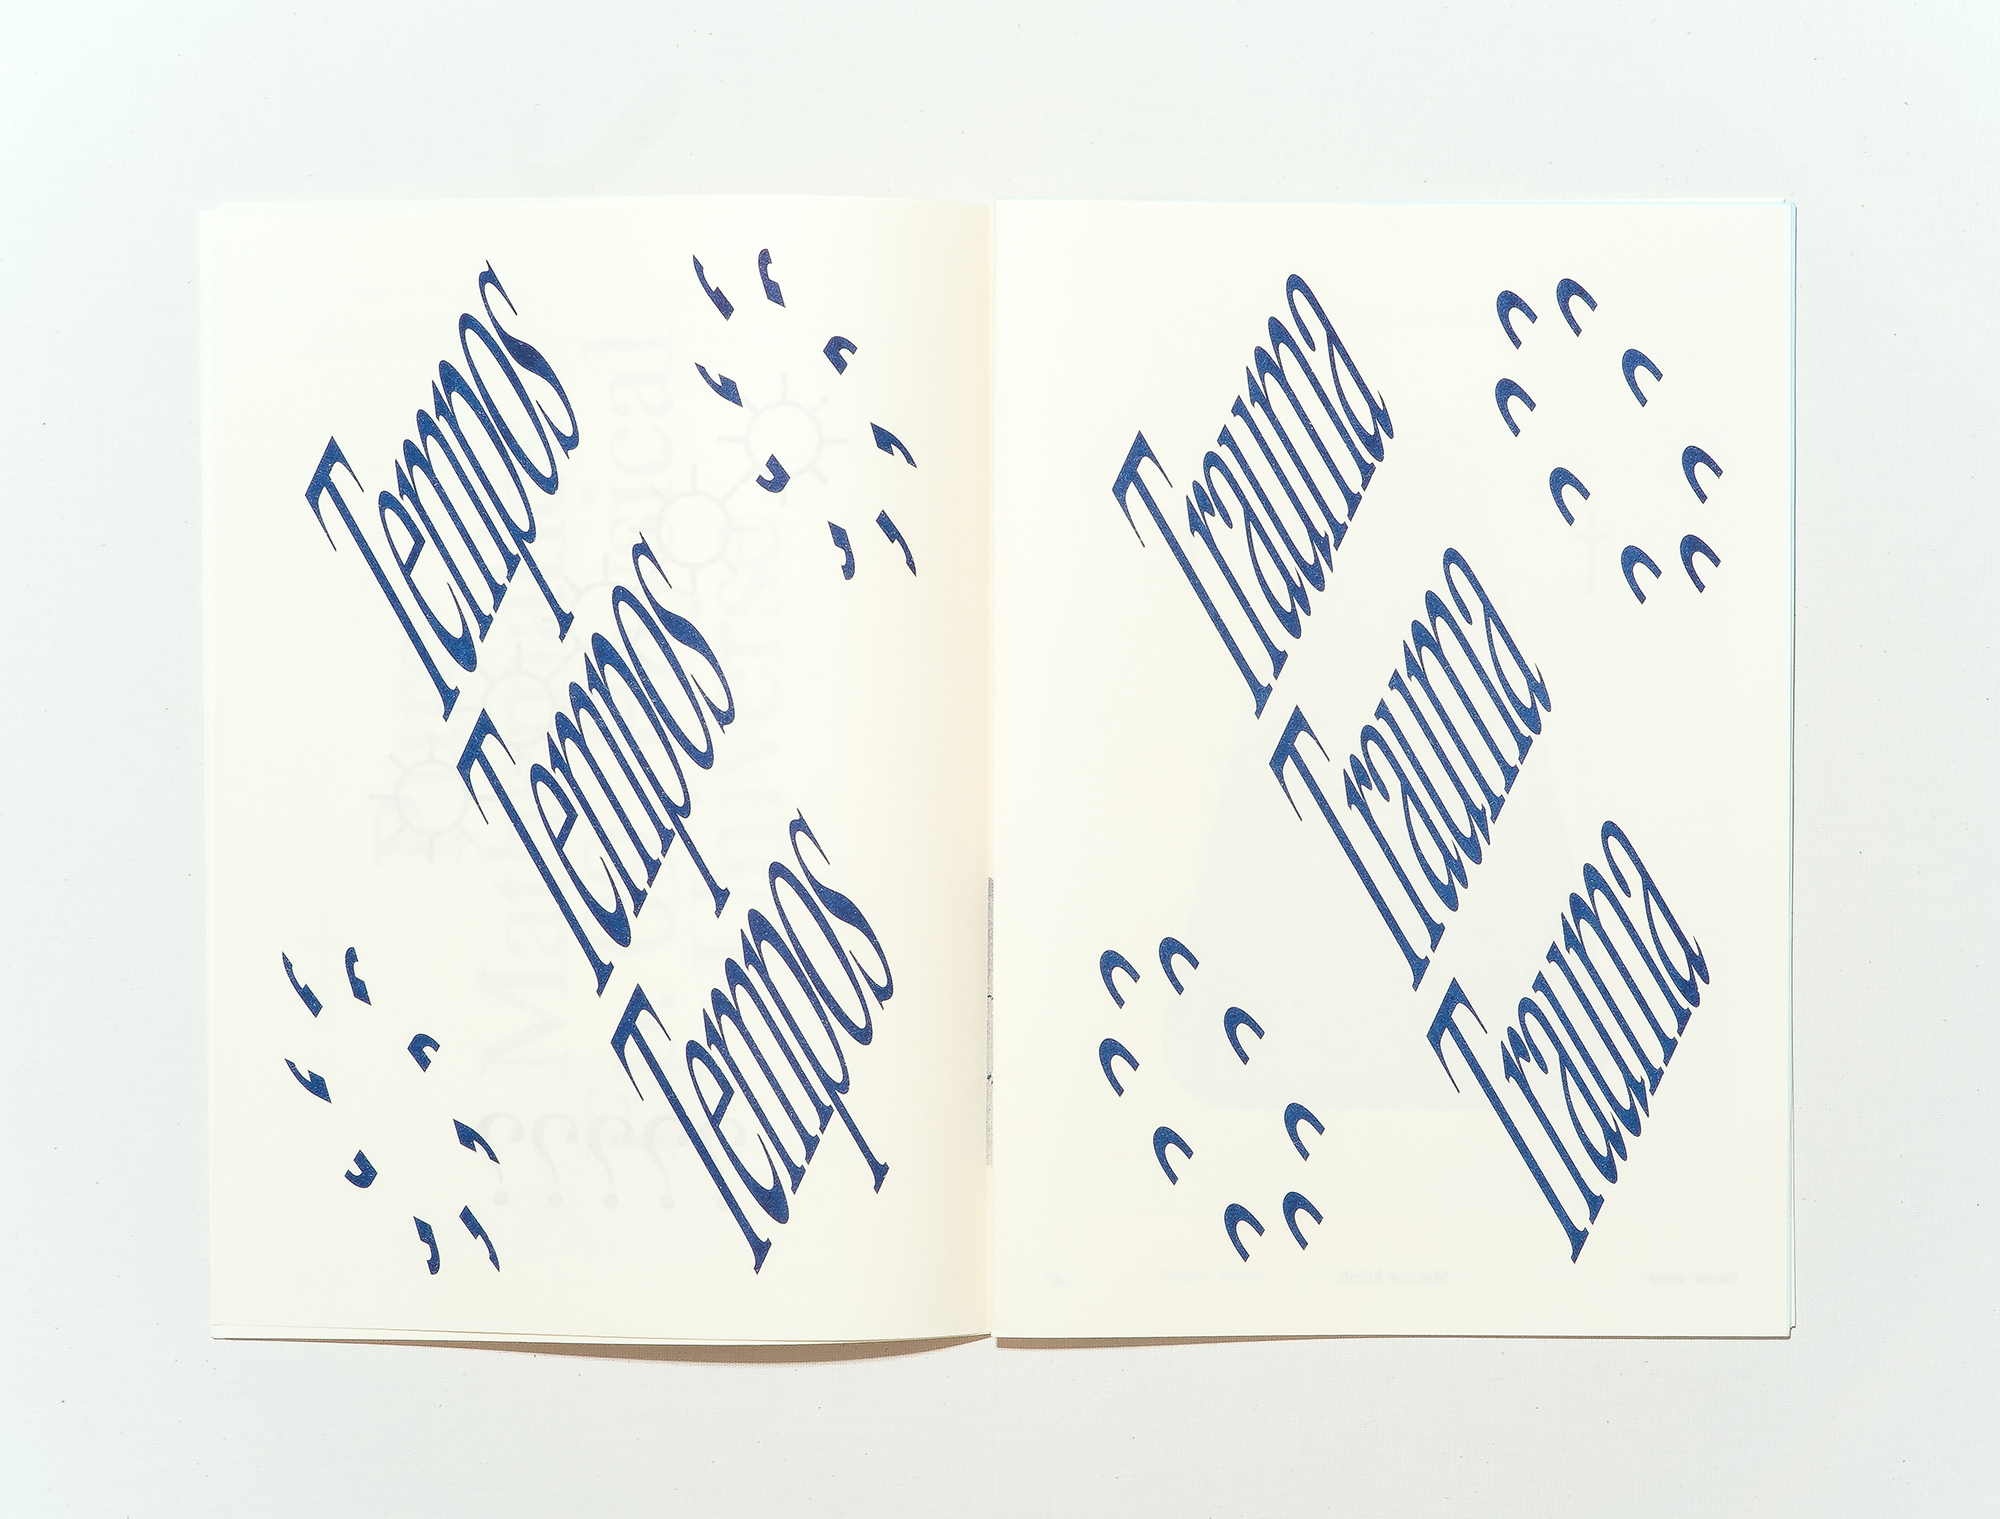 Tempos
Tempos
Tempos
Trauma
Trauma
Trauma